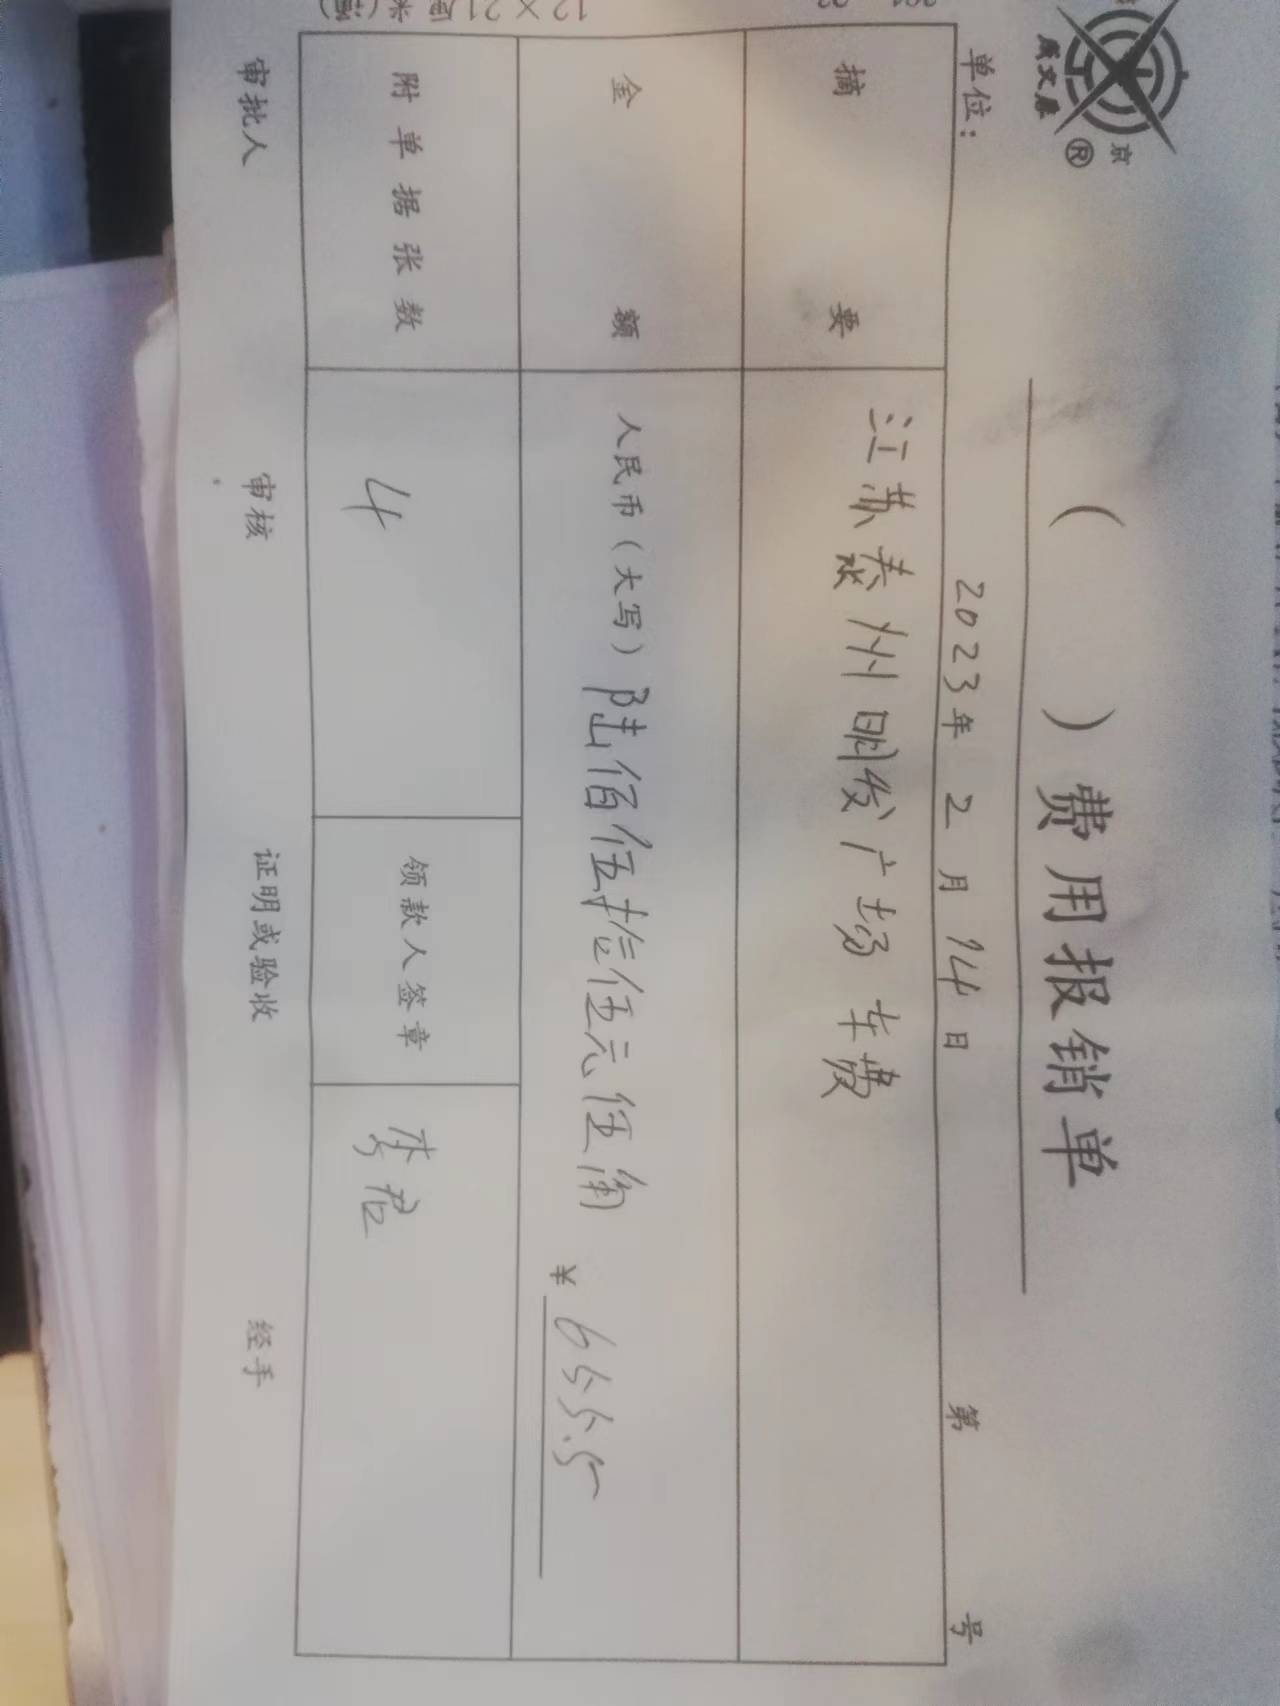 京
®
成文厚
（ ）费用报销单
单位：
2023年 2月 14日
第 号
摘要
江苏泰州明发广场车费
金额
人民币（大写）陆佰伍拾伍元伍角
¥ 655.5
附单据张数
4
领款人签章
李君
审批人
审核
证明或验收
经手